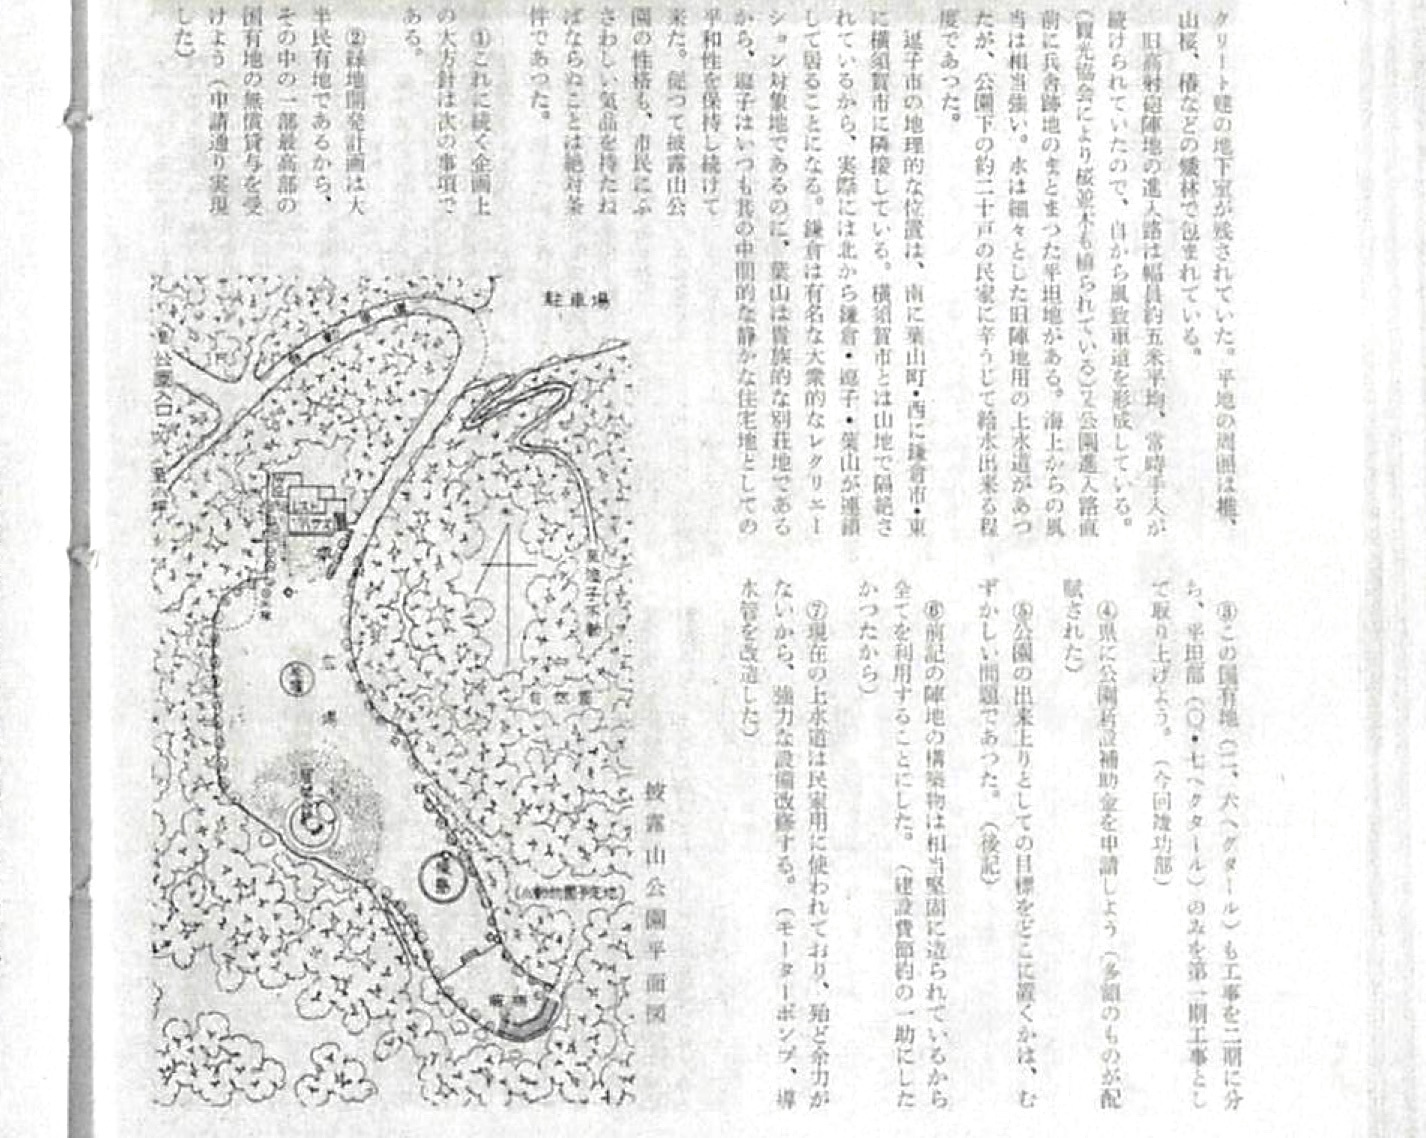 クリート建の地下室が残されていた。平地の周囲は椎、
山桜、椿などの矮林で包まれている。
旧高射砲陣地の進入路は幅員約五米平均、常時手入が
続けられていたので、自から風致車道を形成している。
(観光協会により桜並木も植られている)又公園進入路直
前に兵舎跡地のまとまつた平坦地がある。海上からの風
当は相当強い。水は細々とした旧陣地用の上水道があつ
たが、公園下の約二十戸の民家に辛うじて給水出来る程
度であつた。
逗子市の地理的な位置は、南に葉山町・西に鎌倉市・東
に横須賀市に隣接している。横須賀市とは山地で隔絶さ
れているから、実際には北から鎌倉・逗子・葉山が連鎖
して居ることになる。鎌倉は有名な大衆的なレクリエー
ション対象地であるのに、葉山は貴族的な別荘地である
から、逗子はいつも其の中間的な静かな住宅地としての
平和性を保持し続けて
来た。従つて披露山公
園の性格も、市民にふ
さわしい気品を持たね
ばならぬことは絶対条
件であつた。
①これに続く企画上
の大方針は次の事項で
ある。
②緑地開発計画は大
半民有地であるから、
その中の一部最高部の
国有地の無償貸与を受
けよう(申請通り実現
した)
③この国有地(二、六ヘクタール)も工事を二期に分
ち、平坦部(〇・七ヘクタール)のみを第一期工事とし
て取り上げよう。(今回竣功部)
④県に公園新設補助金を申請しよう(多額のものが配
賦された)
⑤公園の出来上りとしての目標をどこに置くかは、む
ずかしい問題であつた。(後記)
⑥前記の陣地の構築物は相当堅固に造られているから
全てを利用することにした。(建設費節約の一助にした
かつたから)
⑦現在の上水道は民家用に使われており、殆ど余力が
ないから、強力な設備改修する。(モーターポンプ、導
水管を改造した)
披露山公園平面図
駐車場
公園入口
レスト
ハウス
広場
至逗子不動
自然園
(小動物園予定地)